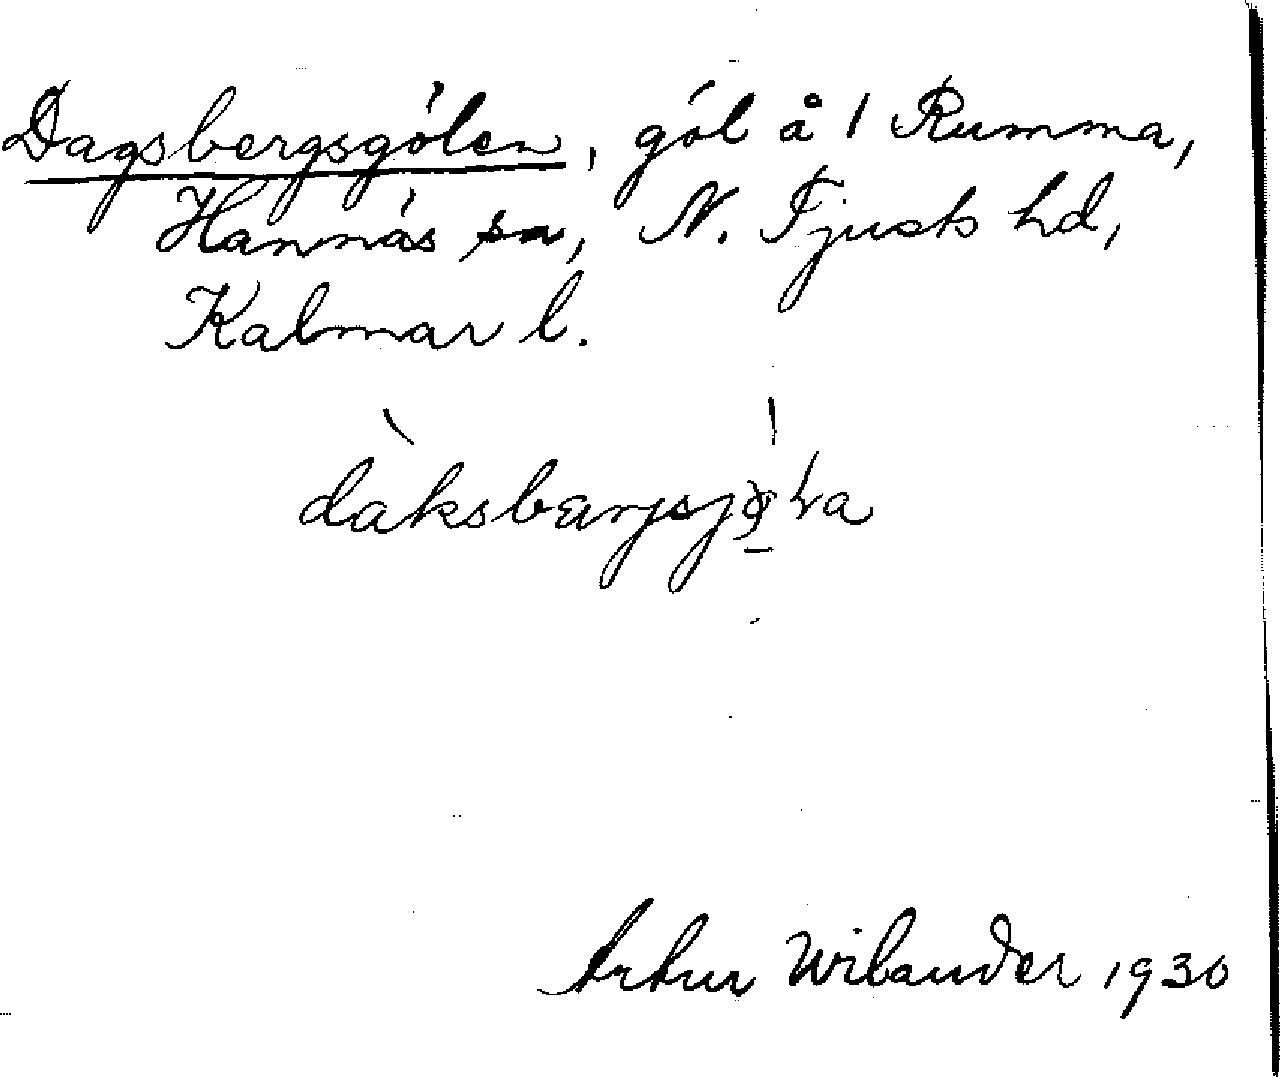 Dagsbergsgölen, göl å 1 Rumma,
Hannäs sn, N. Tjusts hd,
Kalmar l.
Artur Wilander 1930